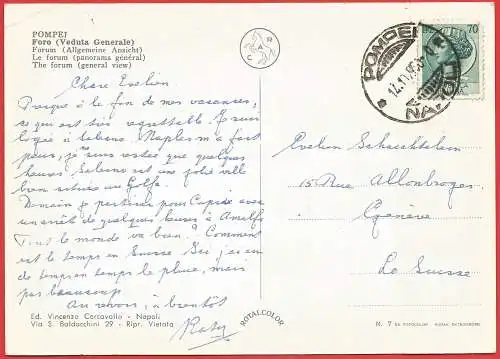 POMPEI
Foro (Veduta Generale)
Forum (Allgemeine Ansicht)
Le forum (panorama général)
The forum (general view)
C R A
POMPEI
NAPOLI
70
Chère Evelien
Presque à la fin de mes vacances,
ce qui est très regrettable. Je suis
logée à Salerno. Naples m'a fait
peur, je suis restée que quelques
heures. Salerno est une jolie ville
bien située au Golfe.
Demain je partirai pour Capri avec
un arrêt de quelques heures à Amalfi
Tout le monde va bien? Comment
est le temps en Suisse. Ici, j'ai eu
de temps en temps la pluie, mais
pas beaucoup.
Au revoir, à bientôt
Evelien
15 Rue Allobroges
Genève
La Suisse
Ed. Vincenzo Carcavallo - Napoli
Via S. Baldacchini 29 - Ripr. Vietata
ROTALCOLOR
N. 7